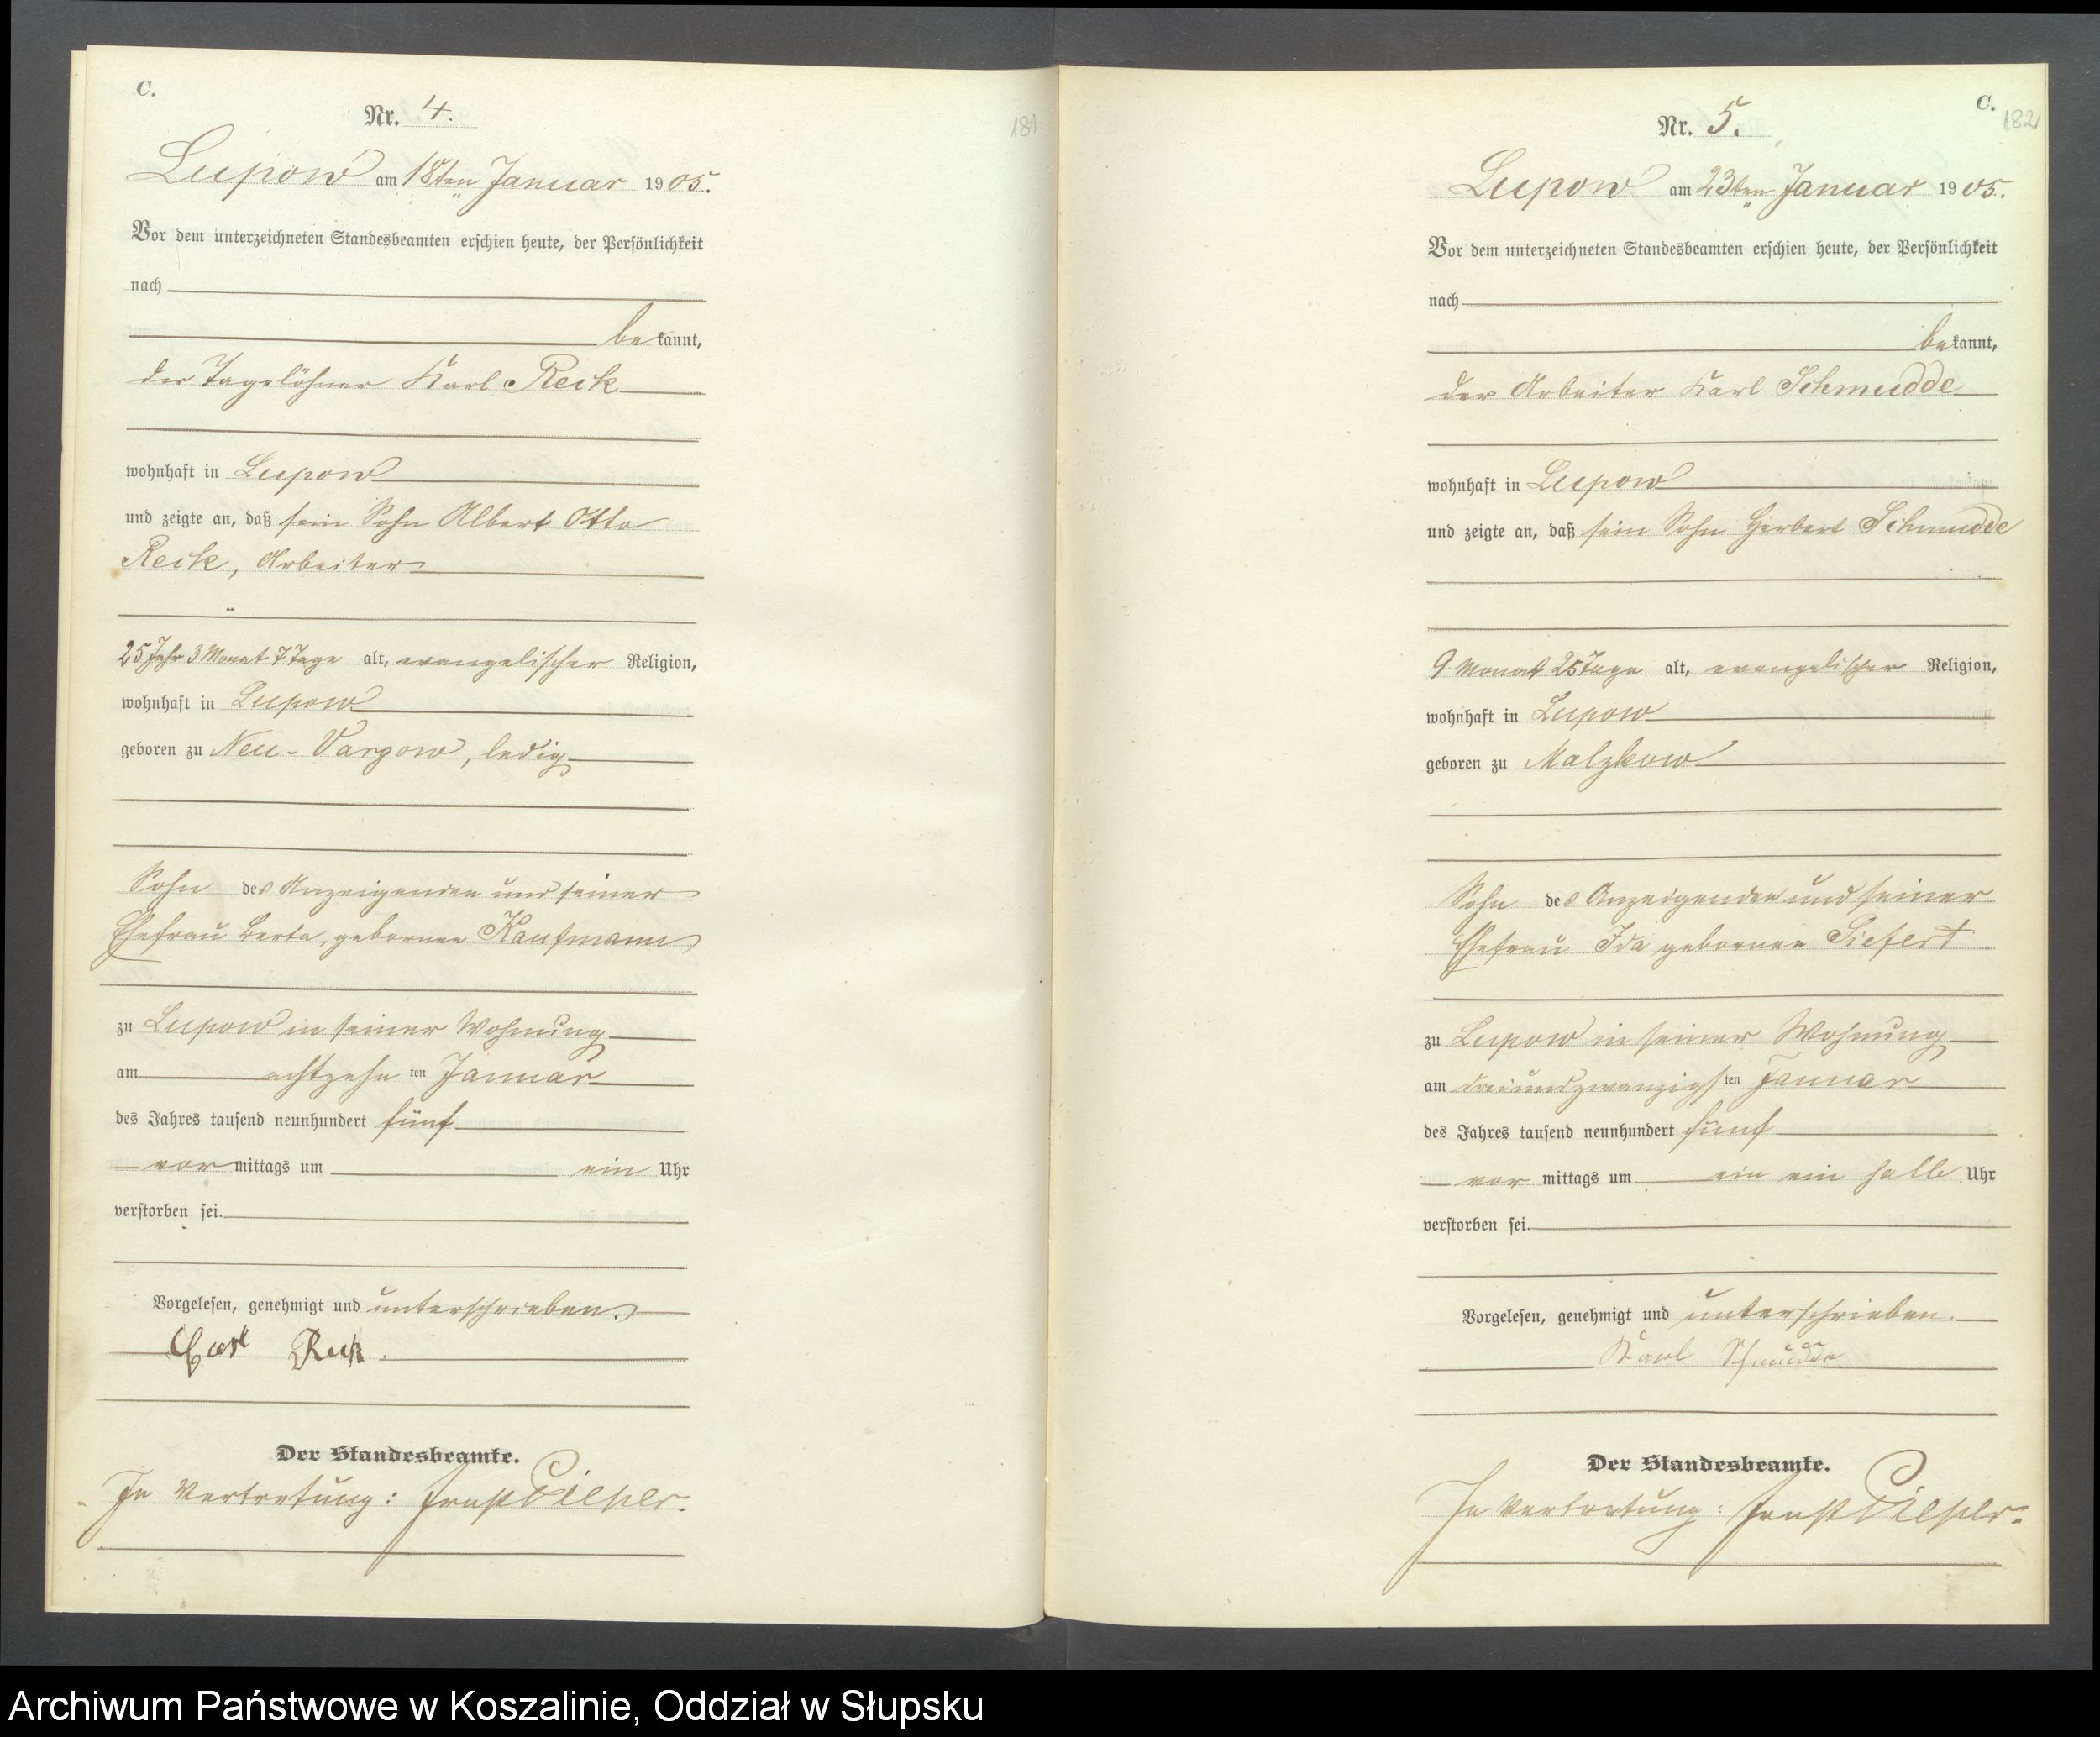 C.
Nr. 4.
181
Lupow am 18ten Januar 1905.
Vor dem unterzeichneten Standesbeamten erschien heute, der Persönlichkeit
nach
bekannt,
der Tagelöhner Karl Reck
wohnhaft in Lupow
und zeigte an, daß sein Sohn Albert Otto
Reck, Arbeiter
25 Jahr 3 Monat 7 Tage alt, evangelischer Religion,
wohnhaft in Lupow
geboren zu Neu-Varzow, ledig
Sohn des Anzeigenden und seiner
Ehefrau Berta, gebornen Kaufmann
zu Lupow in seiner Wohnung
am achtzehnten Januar
des Jahres tausend neunhundert fünf
vormittags um ein Uhr
verstorben sei.
Vorgelesen, genehmigt und unterschrieben.
Carl Reck.
Der Standesbeamte.
In Vertretung: Ernst Pieper.
C.
182
Nr. 5.
Lupow am 23ten Januar 1905.
Vor dem unterzeichneten Standesbeamten erschien heute, der Persönlichkeit
nach
bekannt,
der Arbeiter Karl Schmudde
wohnhaft in Lupow
und zeigte an, daß sein Sohn Herbert Schmudde
9 Monat 25 Tage alt, evangelischer Religion,
wohnhaft in Lupow
geboren zu Malzkow
Sohn des Anzeigenden und seiner
Ehefrau Ida gebornen Siefert
zu Lupow in seiner Wohnung
am dreiundzwanzigsten Januar
des Jahres tausend neunhundert fünf
vormittags um ein ein halb Uhr
verstorben sei.
Vorgelesen, genehmigt und unterschrieben.
Karl Schmudde
Der Standesbeamte.
In Vertretung: Ernst Pieper.
Archiwum Państwowe w Koszalinie, Oddział w Słupsku